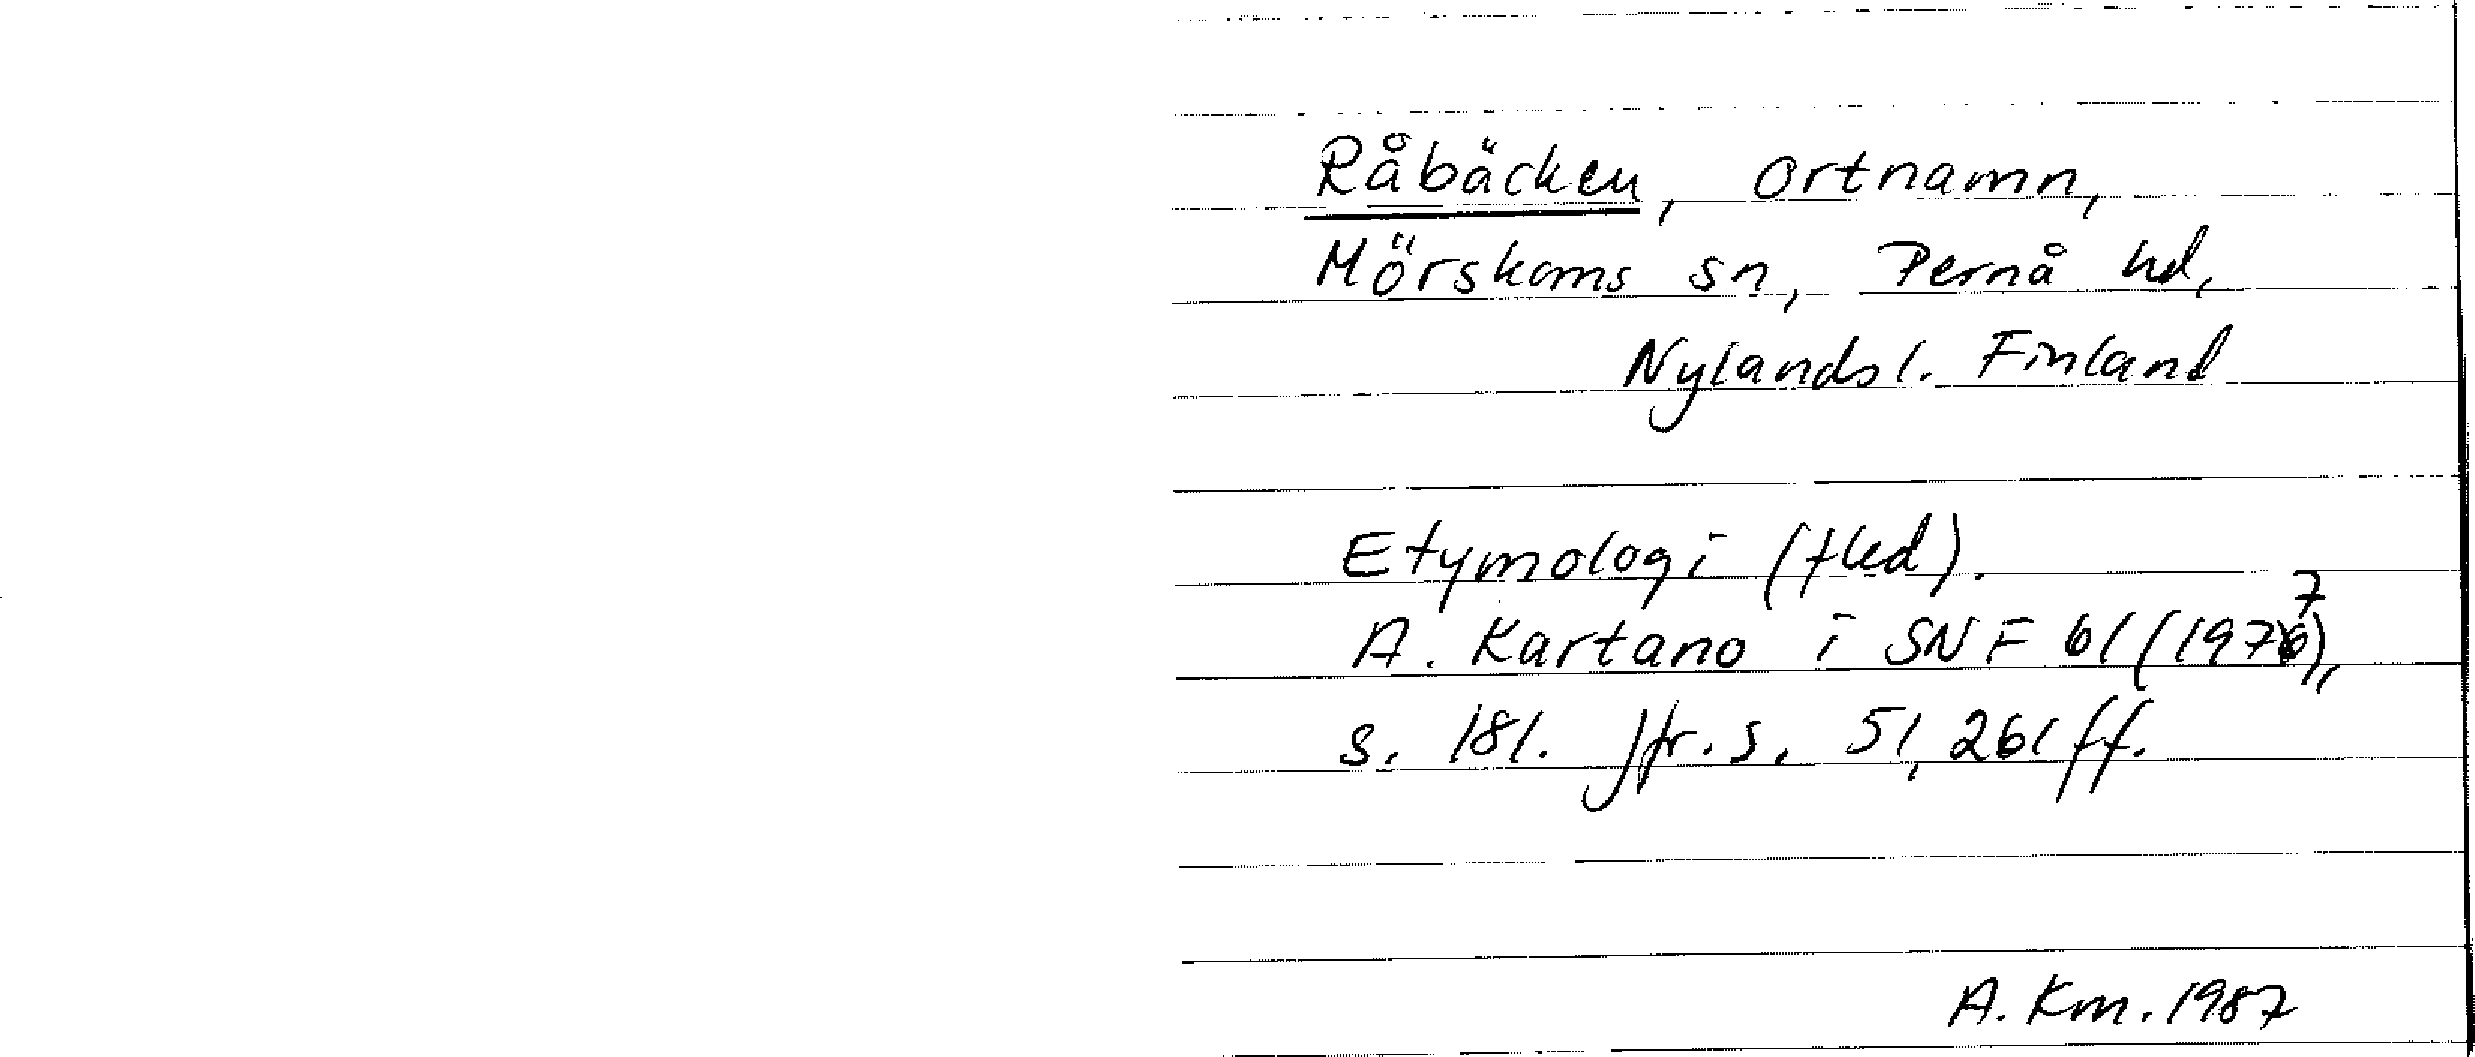 Råbäcken, ortnamn,
Mörskoms sn, Pernå hd,
Nylands l. Finland
Etymologi (fled).
A. Kartano i SNF 61 (1977),
s. 181. Jfr. s. 51, 261 ff.
A. Km. 1987